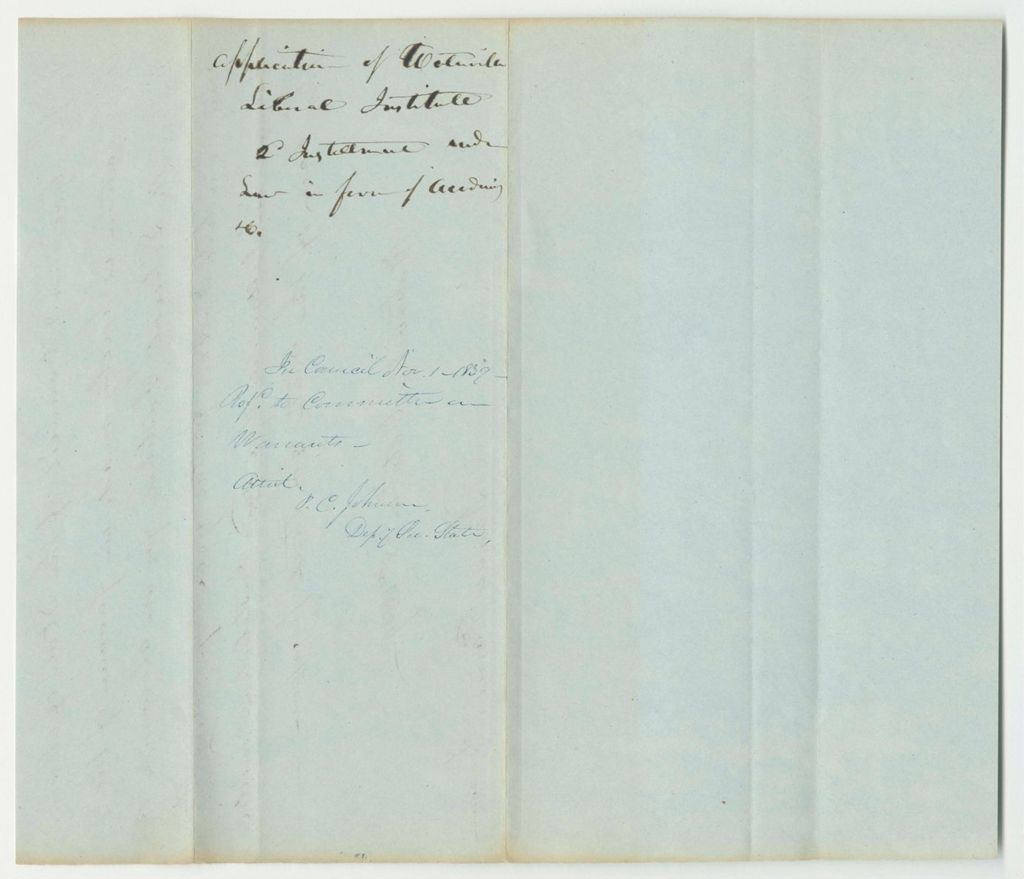 Application of Waterville
Liberal Institute
2d Instalment under
Law in favor of Academies
&c.
In Council Nov. 1 - 1837 -
Ref.d to Committee on
Warrants -
Attest.
P. C. Johnson,
Dep.y Sec. State,